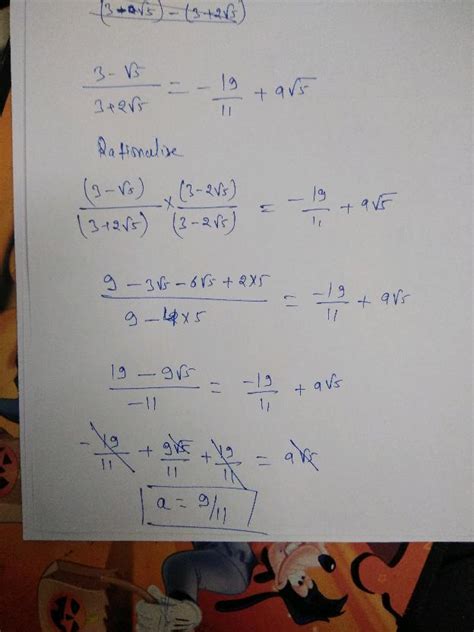 (3+2√5) - (3+2√5)
3-√5 / 3+2√5 = -19/11 + a√5
Rationalise
(3-√5)/(3+2√5) × (3-2√5)/(3-2√5) = -19/11 + a√5
9 - 3√5 - 6√5 + 2×5 / 9 - 4×5 = -19/11 + a√5
19 - 9√5 / -11 = -19/11 + a√5
-19/11 + 9√5/11 + 19/11 = a√5
a = 9/11